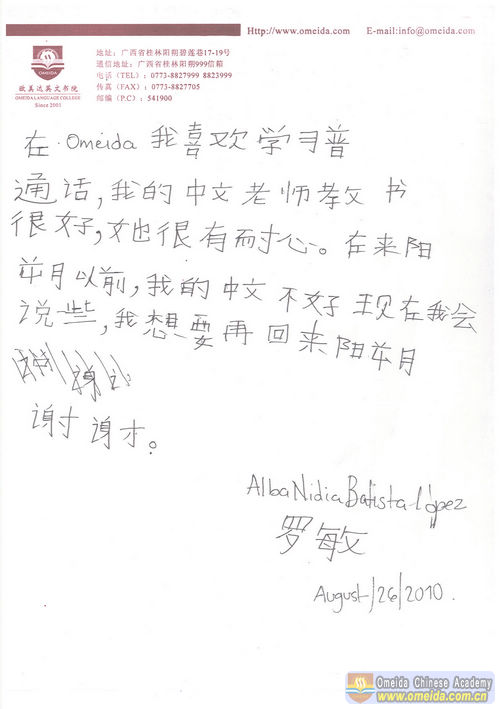 Http://www.omeida.com E-mail:info@omeida.com
欧美达英文书院
OMEIDA LANGUAGE COLLEGE
Since 2001
地址：广西省桂林阳朔碧莲巷17-19号
通信地址：广西省桂林阳朔999信箱
电话（TEL）：0773-8827999 8823999
传真（FAX）：0773-8827705
邮编（P.C）：541900
在 Omeida 我喜欢学习普
通话，我的中文老师教书
很好，她也很有耐心。在来阳
朔以前，我的中文不好现在我会
说些，我想要再回来阳朔
谢谢。
Alba Nidia Batista-lópez
罗敏
August/26/2010.
Omeida Chinese Academy
www.omeida.com.cn